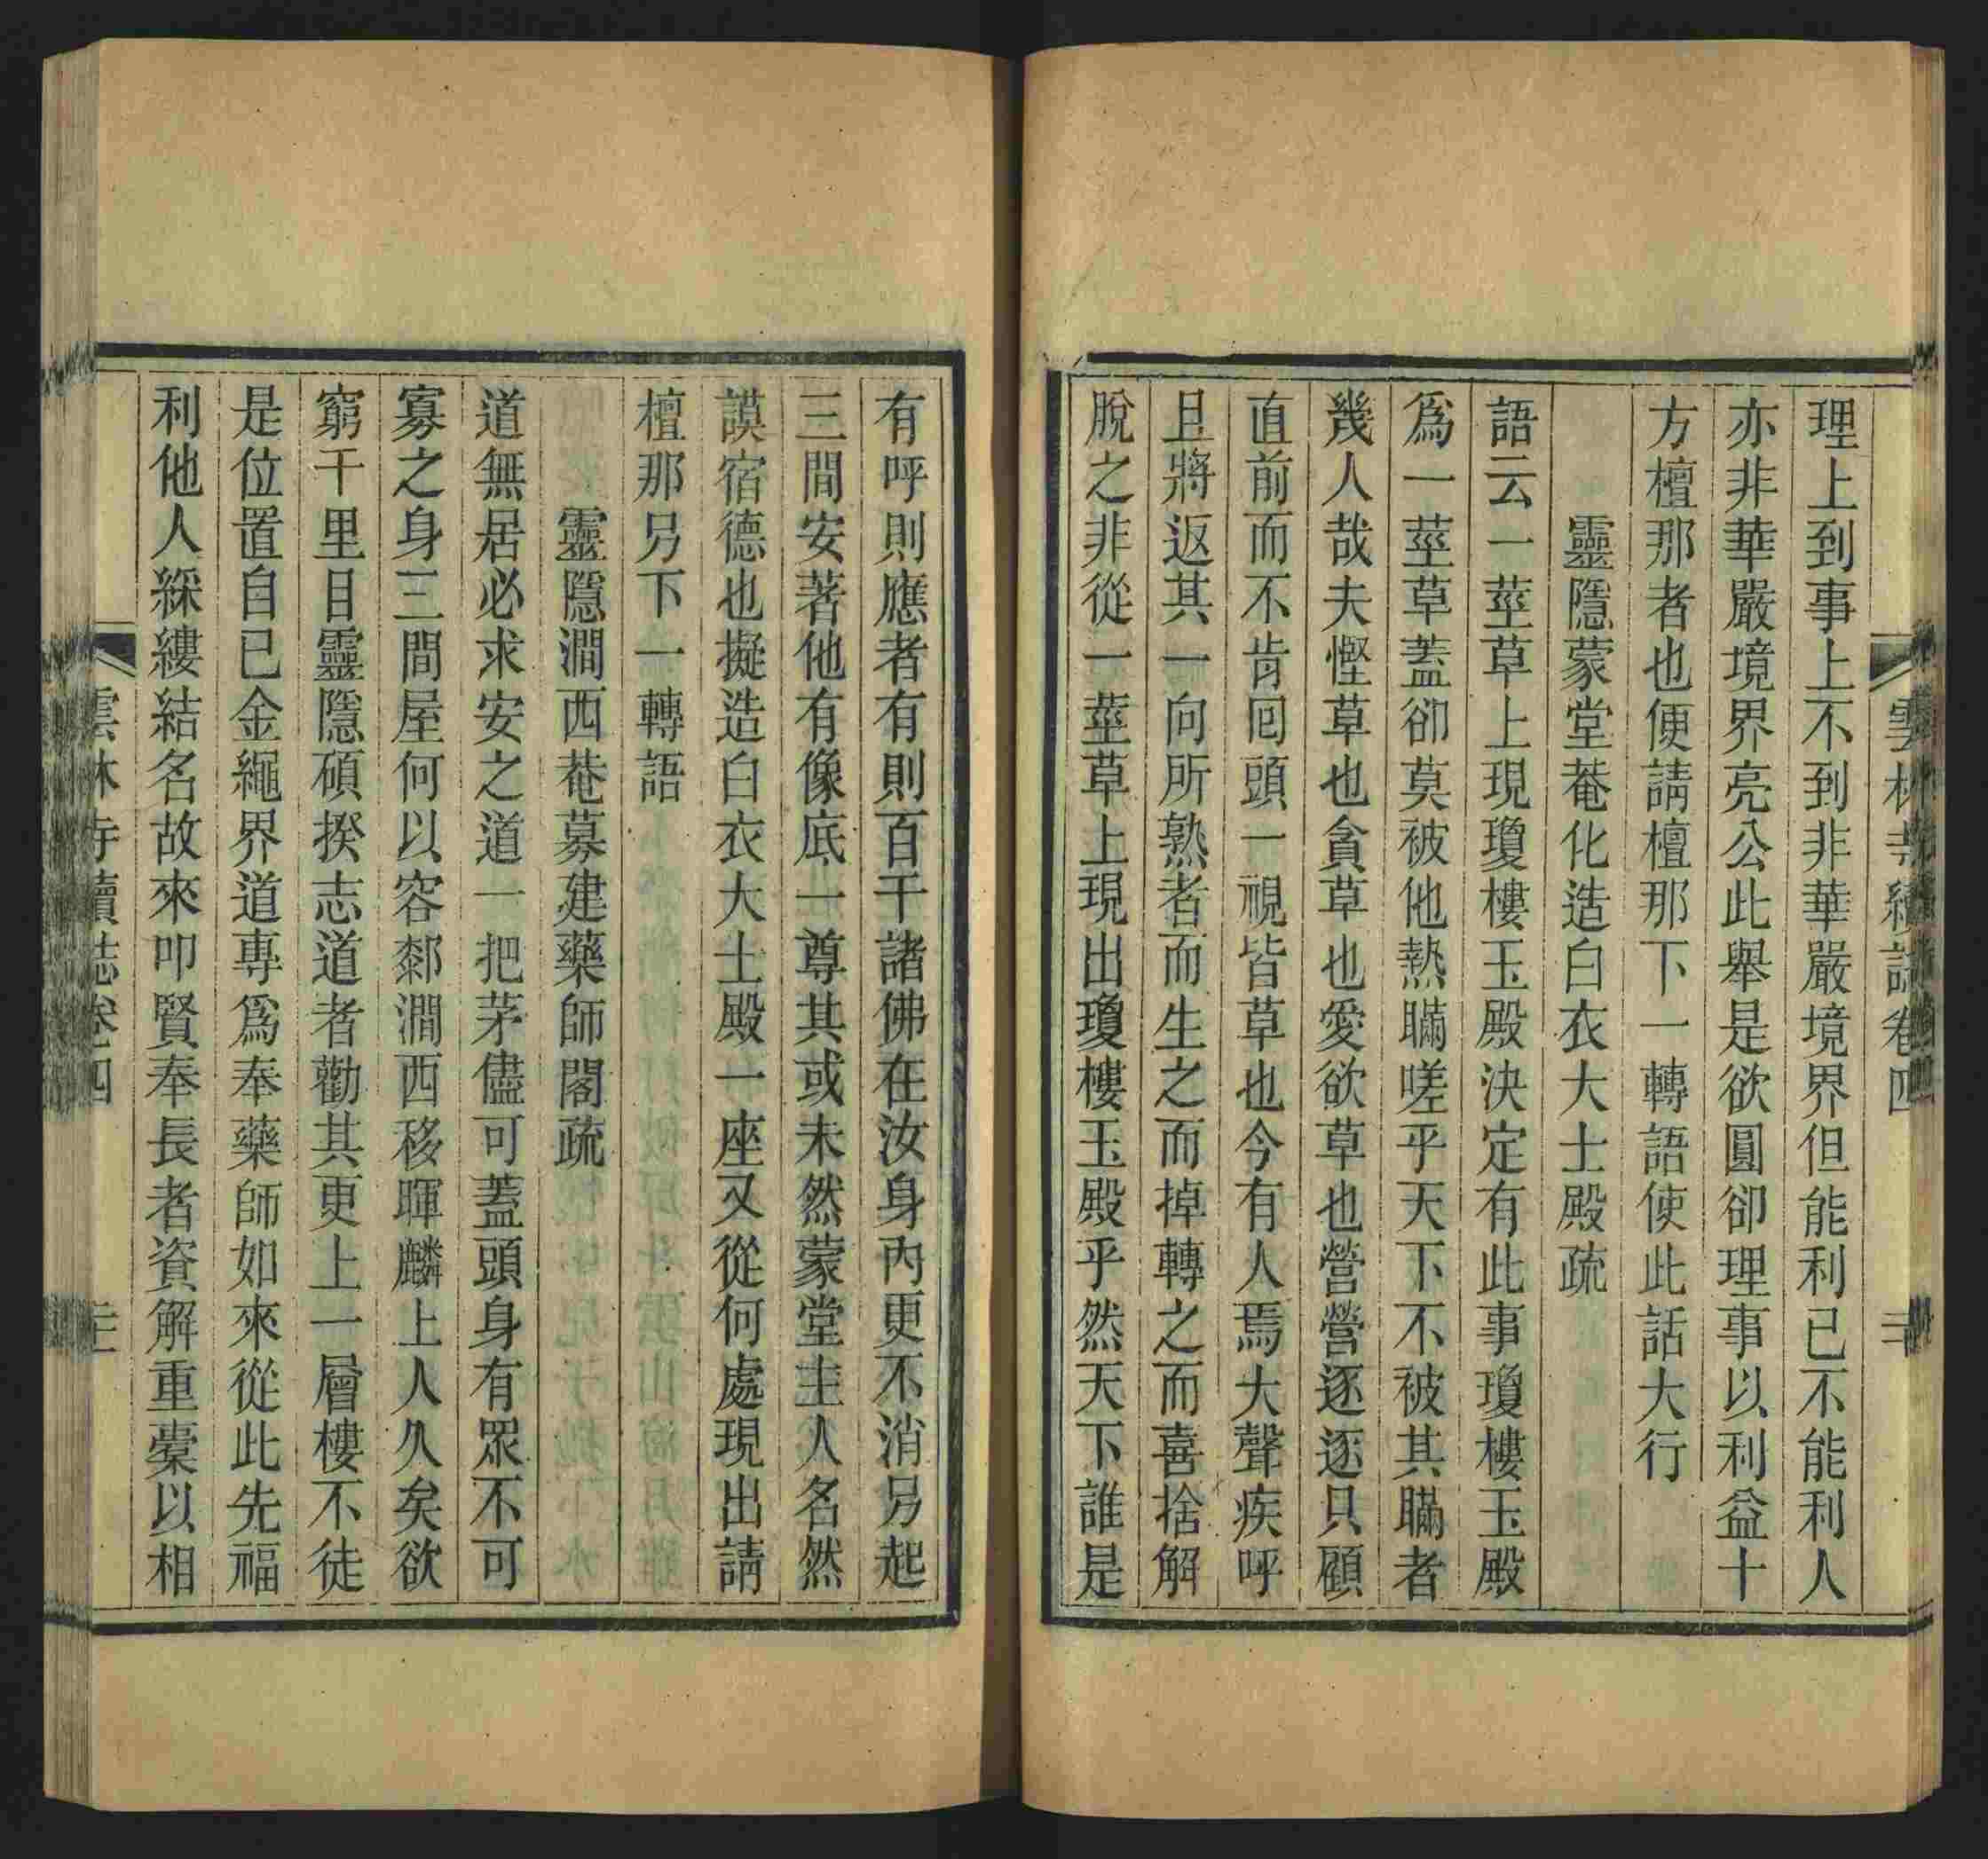 雲林寺續誌卷四
理上到事上不到非華嚴境界但能利已不能利人
亦非華嚴境界亮公此舉是欲圓卻理事以利益十
方檀那者也便請檀那下一轉語使此話大行
靈隱蒙堂菴化造白衣大士殿疏
語云一莖草上現瓊樓玉殿決定有此事瓊樓玉殿
爲一莖草蓋卻莫被他熱瞞嗟乎天下不被其瞞者
幾人哉夫慳草也貪草也愛欲草也營營逐逐只顧
直前而不肯囘頭一視皆草也今有人焉大聲疾呼
且將返其一向所熟者而生之而掉轉之而喜捨解
脫之非從一莖草上現出瓊樓玉殿乎然天下誰是
有呼則應者有則百千諸佛在汝身內更不消另起
三間安著他有像底一尊其或未然蒙堂主人名然
謨宿德也擬造白衣大士殿一座又從何處現出請
檀那另下一轉語
靈隱澗西菴募建藥師閣疏
道無居必求安之道一把茅儘可蓋頭身有眾不可
寡之身三間屋何以容鄰澗西移暉麟上人久矣欲
窮千里目靈隱碩揆志道者勸其更上一層樓不徒
是位置自已金繩界道專爲奉藥師如來從此先福
利他人綵縷結名故來叩賢奉長者資解重櫜以相
雲林寺續誌卷四